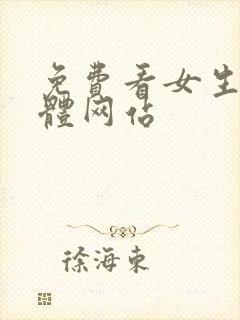 免費看女生
體网站
徐海東